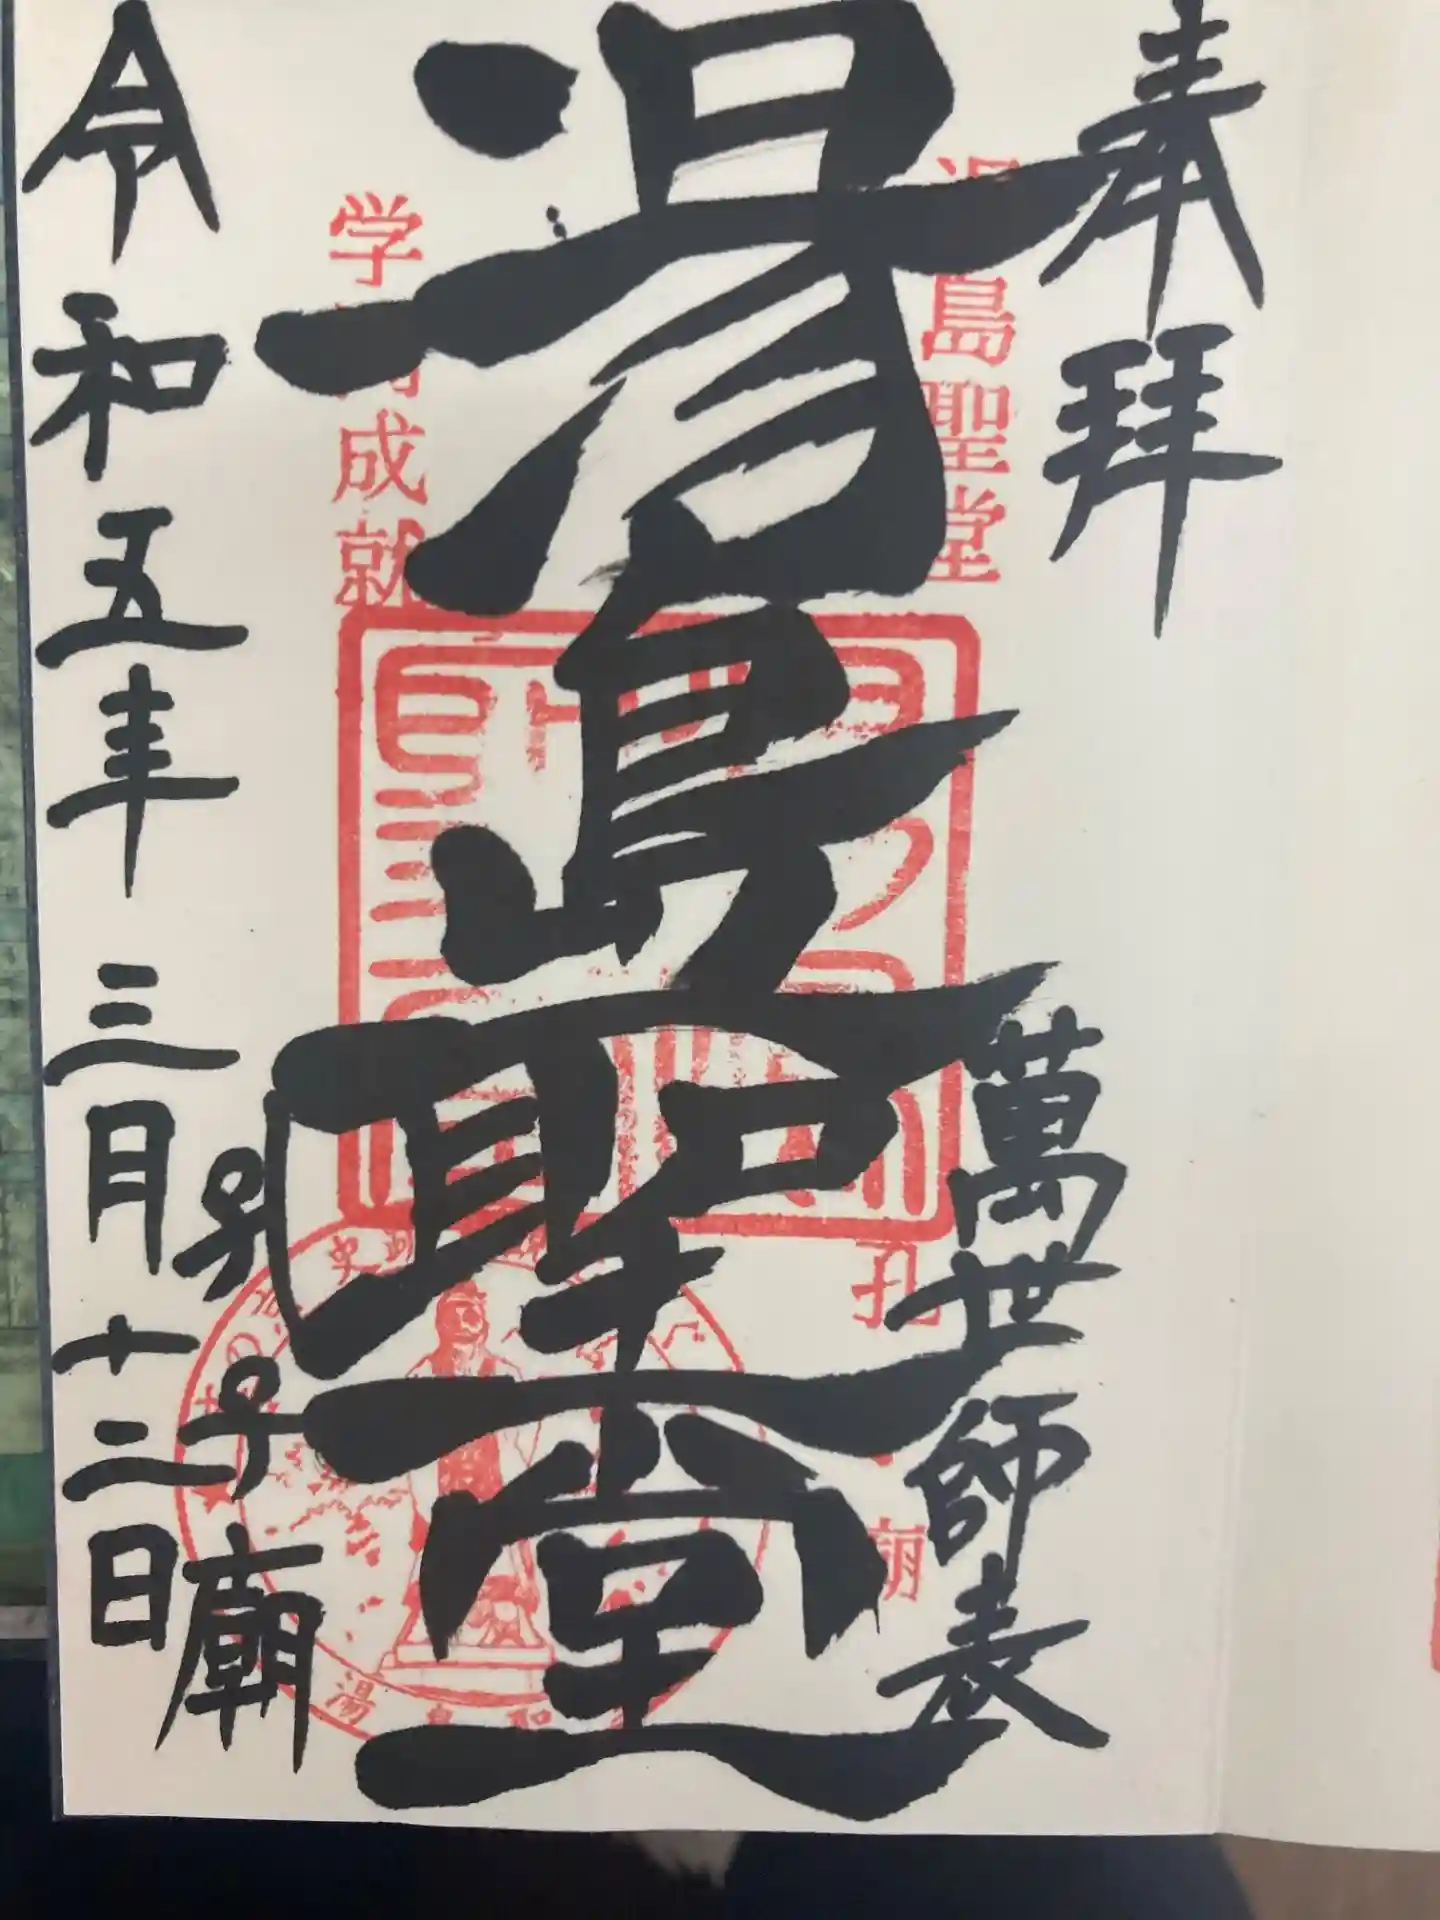 奉拝
萬世師表
島聖堂
孔
廟
湯島聖堂
学
成就
孔子廟
令和五年三月十二日